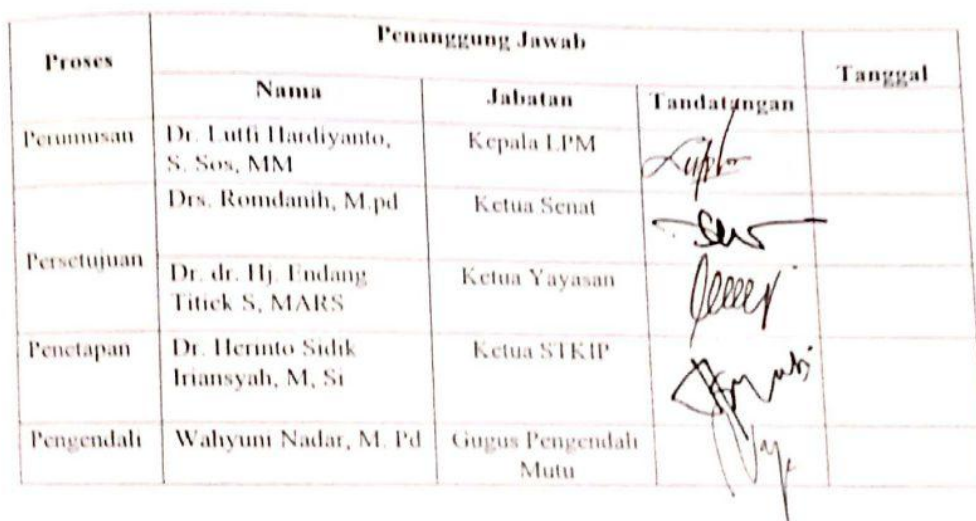 Proses
Penanggung Jawab
Tanggal
Nama
Jabatan
Tandatangan
Perumusan
Dr. Lutfi Hardiyanto,
S. Sos, MM
Kepala LPM
Persetujuan
Drs. Romdanih, M.pd
Ketua Senat
Dr. dr. Hj. Endang
Titiek S, MARS
Ketua Yayasan
Penetapan
Dr. Herinto Sidik
Iriansyah, M, Si
Ketua STKIP
Pengendali
Wahyuni Nadar, M. Pd
Gugus Pengendali
Mutu